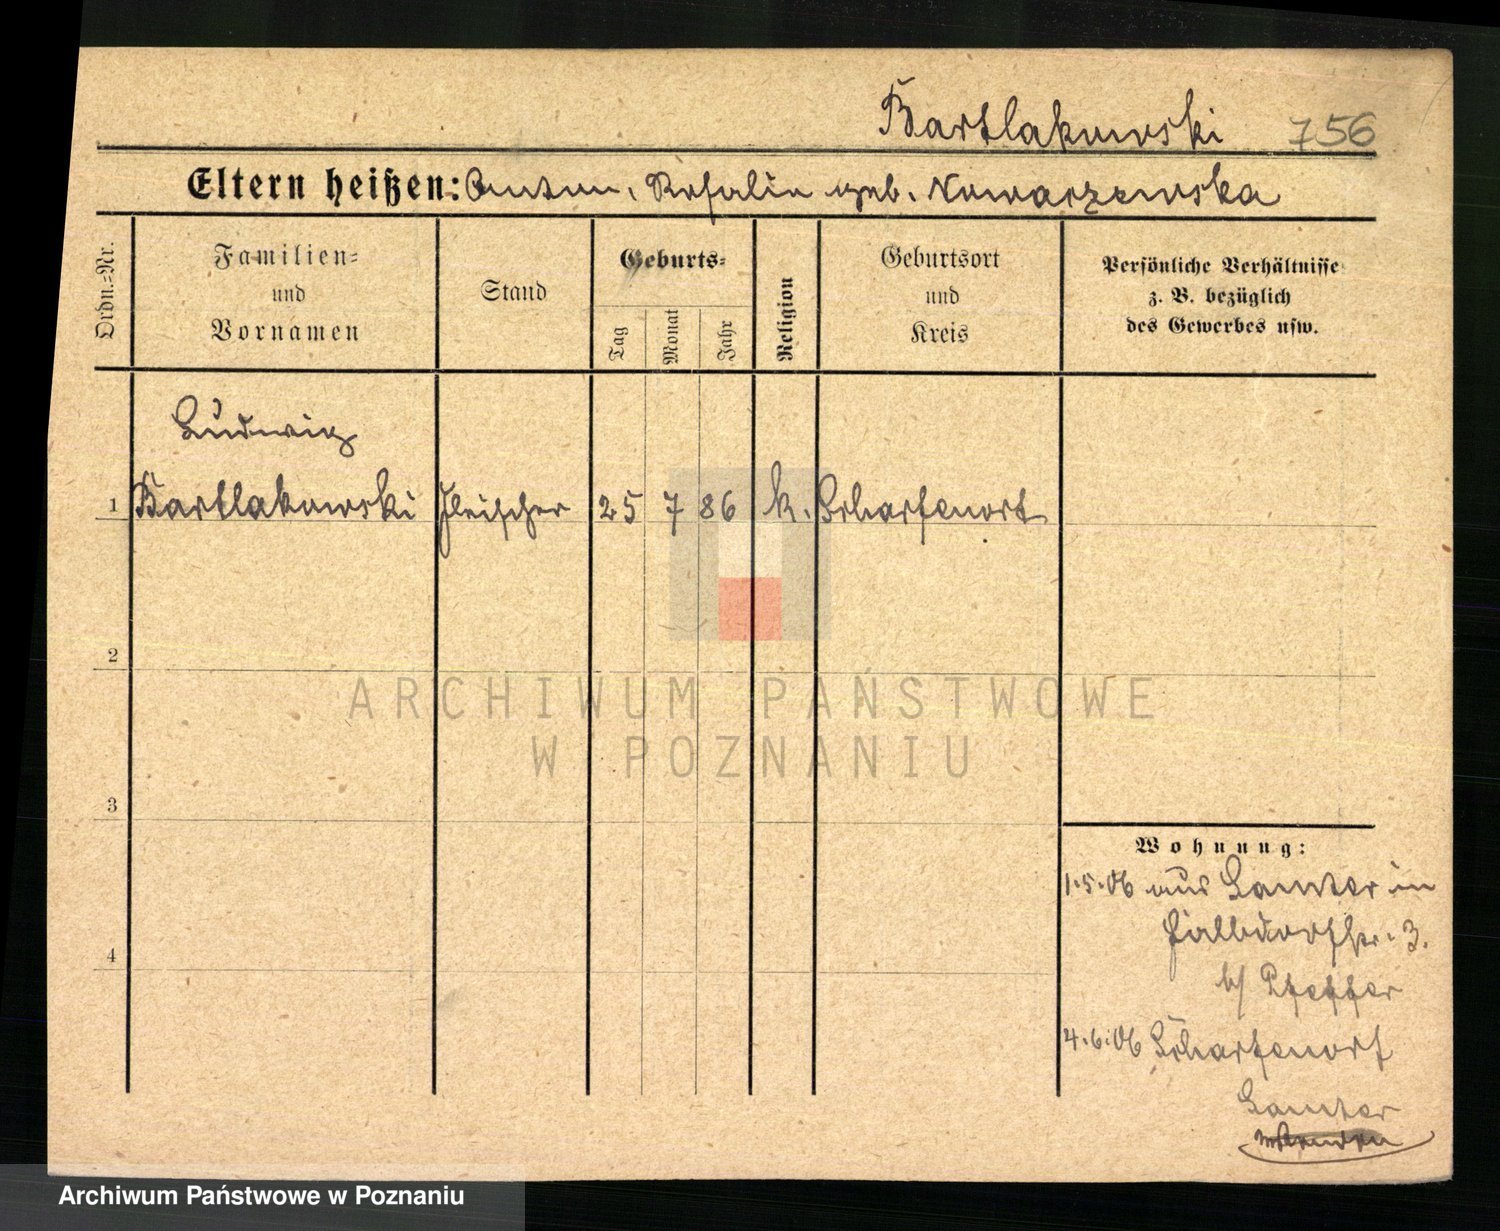 Bartlakowski 756
Eltern heißen: Anton, Rosalie geb. Nowarzewska
Ordn.-Nr.
Familien-
und
Vornamen
Stand
Geburts-
Tag
Monat
Jahr
Religion
Geburtsort
und
Kreis
Persönliche Verhältnisse
z. B. bezüglich
des Gewerbes usw.
Ludwig
1 Bartlakowski Fleischer 25 7 86 k. Scharfenort
2
3
4
Wohnung:
1.5.06 aus Samter in
3.
b/ Pfeffer
4.6.06 Scharfenort
Samter
ARCHIWUM PAŃSTWOWE
W POZNANIU
Archiwum Państwowe w Poznaniu